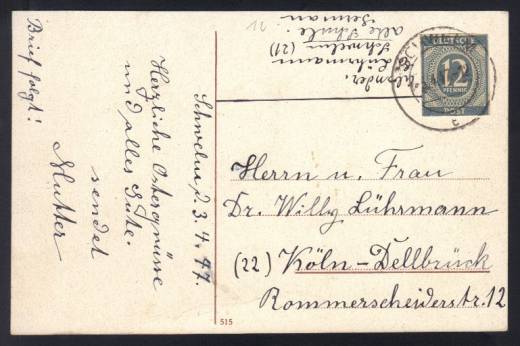 Absender.
Lührmann
Schwelm (21)
alte Schule.
12
DEUTSCHE
12
PFENNIG
POST
c
Schwelm, d. 3.4.47.
Herzliche Ostergrüsse
und alles Gute.
sendet
Mutter
Brief folgt!
Herrn u. Frau
Dr. Willy Lührmann
(22) Köln-Dellbrück
Rommerscheiderstr. 12
515